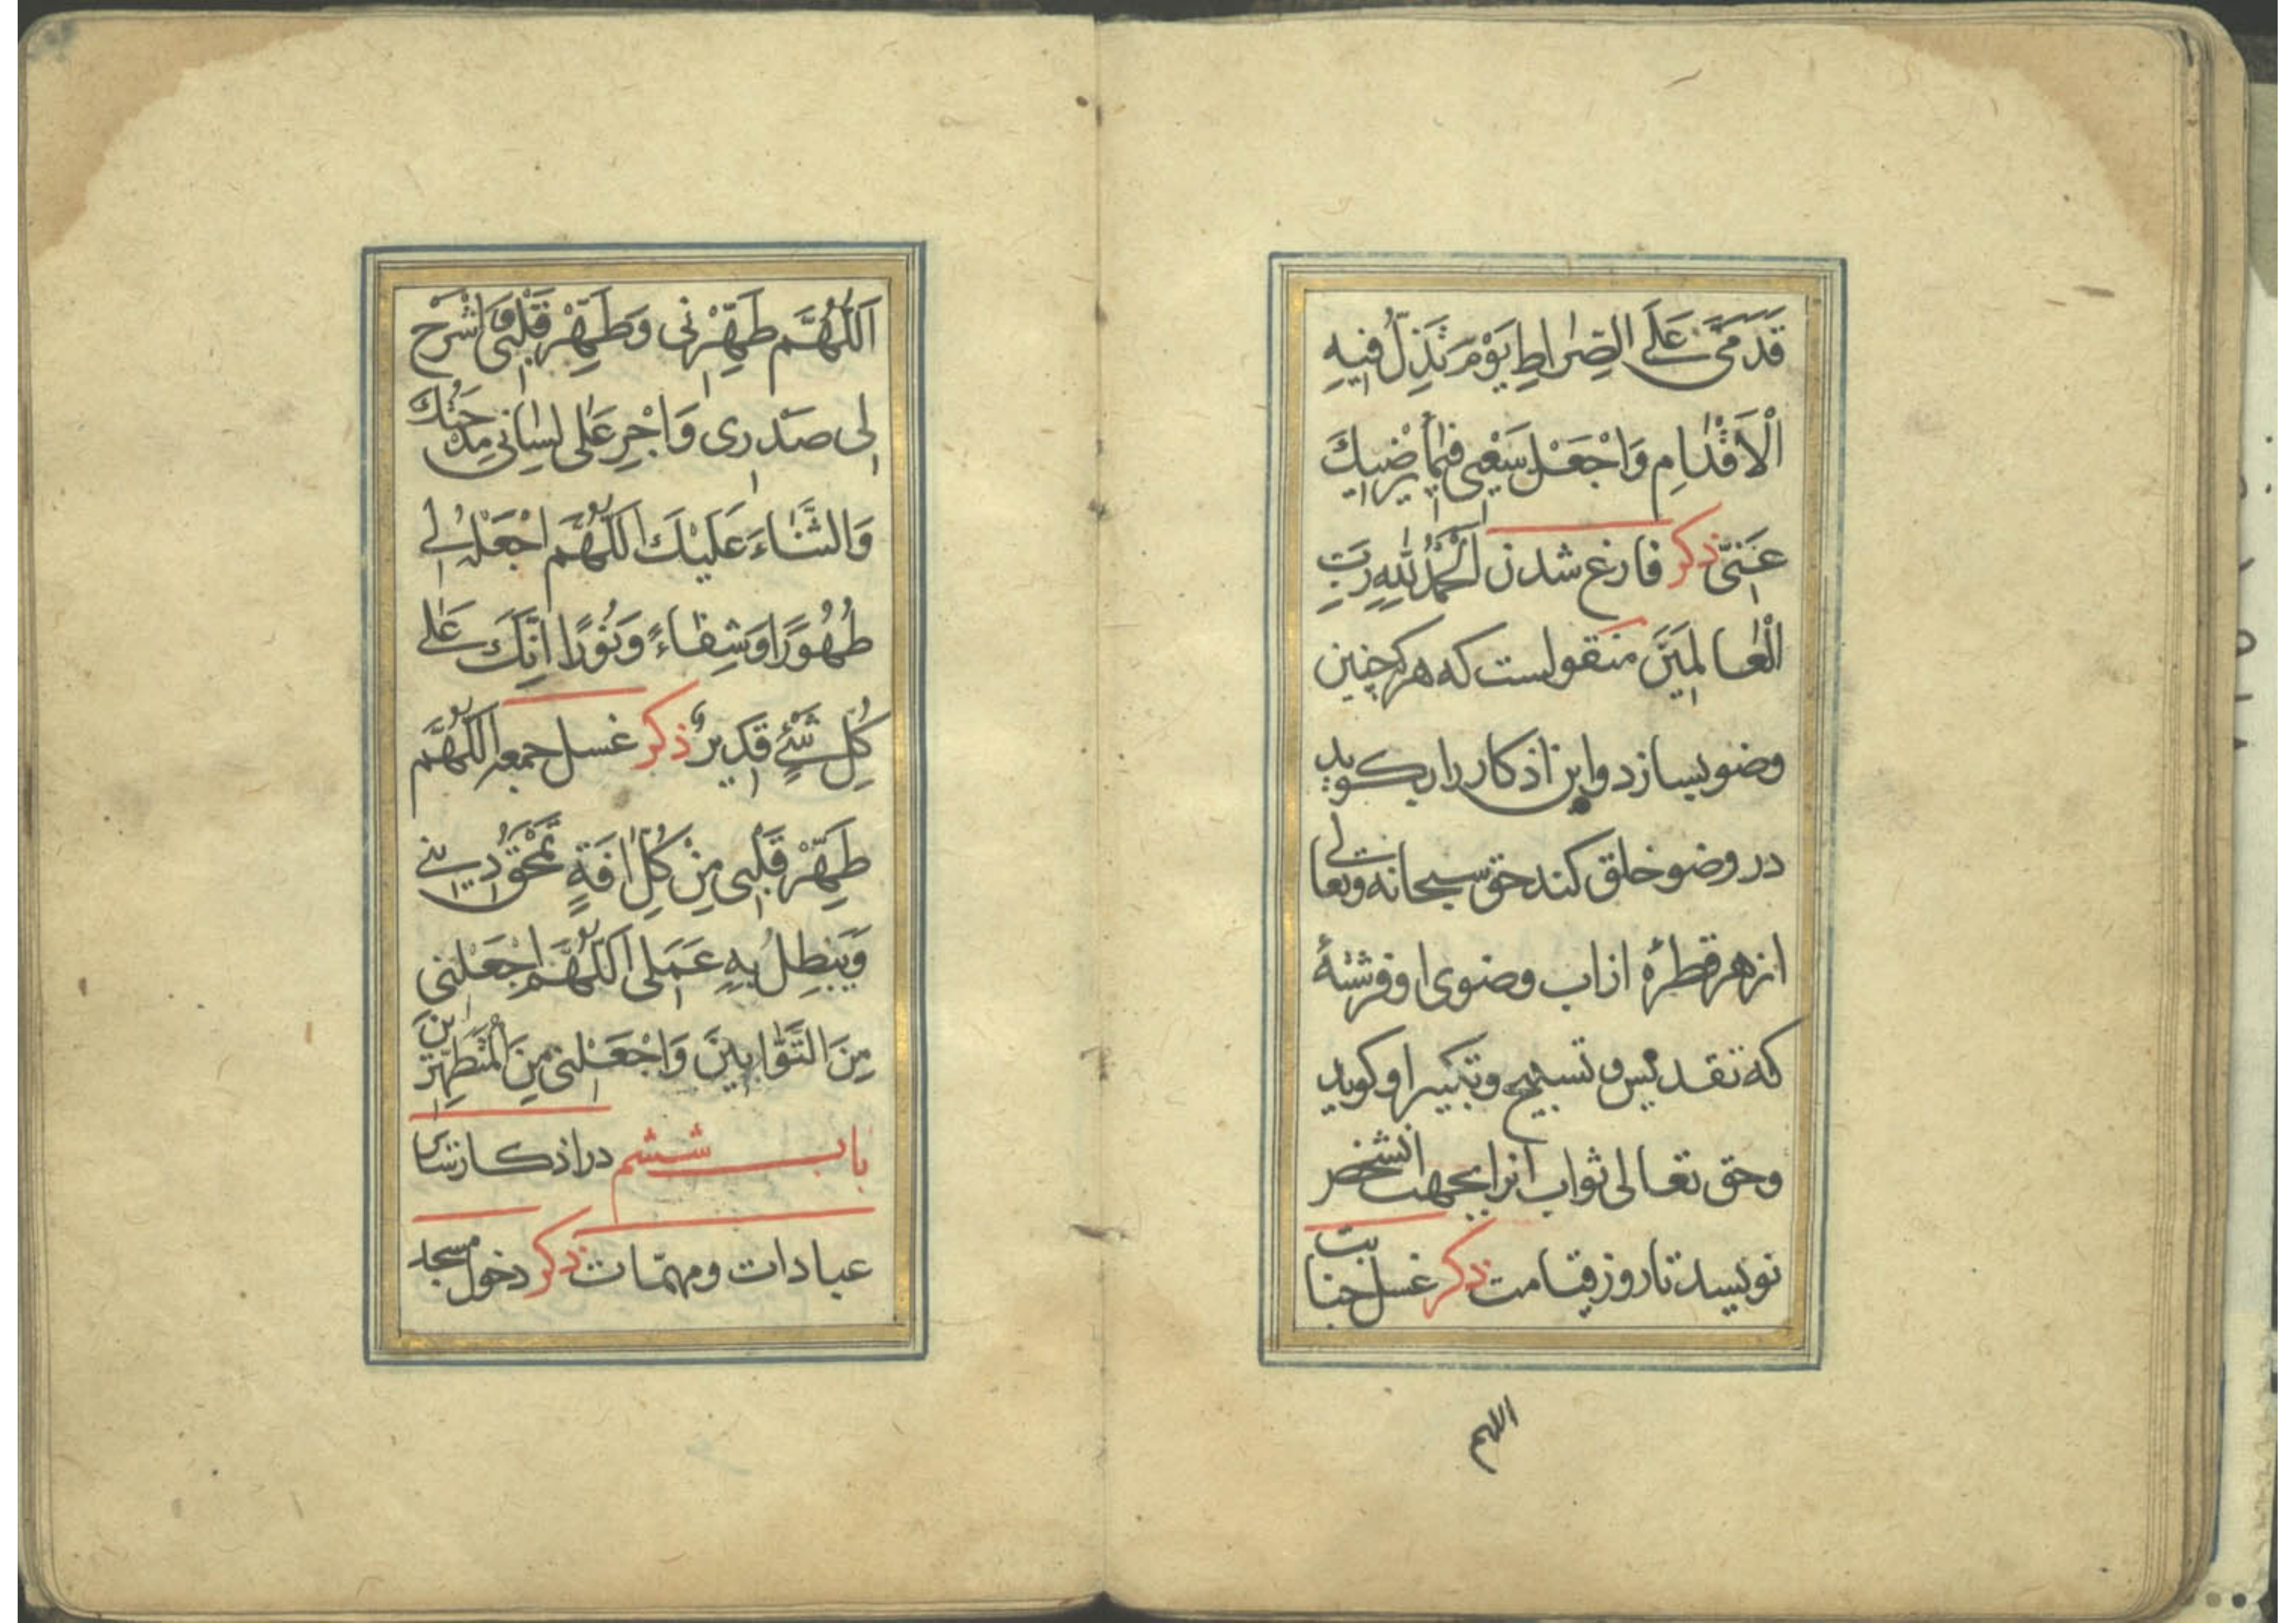 قَدَمَیَّ عَلَی الصِّرٰاطِ یَوْمَ تَذِلُّ فیهِ
الْاَقْدٰامِ وَاجْعَلْ سَعْیی فیمٰا یُرْضیكَ
عَنّی ذکر فارغ شدن اَلْحَمْدُ لِلّٰهِ رَبِّ
الْعٰالَمینَ منقولست که هر که چنین
وضو بسازد و این اذکار را بکوید
در وضو خلق کند حق سبحانه و تعالی
از هر قطرهٔ از اب وضوی او فرشتهٔ
که تقدیس و تسبیح و تکبیر او کوید
و حق تعالی ثواب انرا بجهت انشخص
نویسد تا روز قیامت ذکر غسل جنابت
اللهم
اَللّٰهُمَّ طَهِّرْنی وَطَهِّرْ قَلْبی وَاشْرَحْ
لی صَدْری وَاَجْرِ عَلٰی لِسٰانی مِدْحَتَكَ
وَالثَّنٰاءَ عَلَیْكَ اَللّٰهُمَّ اجْعَلْهُ لی
طَهُورًا وَشِفٰاءً وَنُورًا اِنَّكَ عَلٰی
کُلِّ شَیْئٍ قَدیرٌ ذکر غسل جمعه اَللّٰهُمَّ
طَهِّرْ قَلْبی مِنْ کُلِّ اٰفَةٍ تَمْحَقُ دینی
وَیَبْطِلُ بِهِ عَمَلی اَللّٰهُمَّ اجْعَلْنی
مِنَ التَّوّٰابینَ وَاجْعَلْنی مِنَ الْمُتَطَهِّرینَ
باب ششم در اذکار سایر
عبادات و مهمّات ذکر دخول مسجد